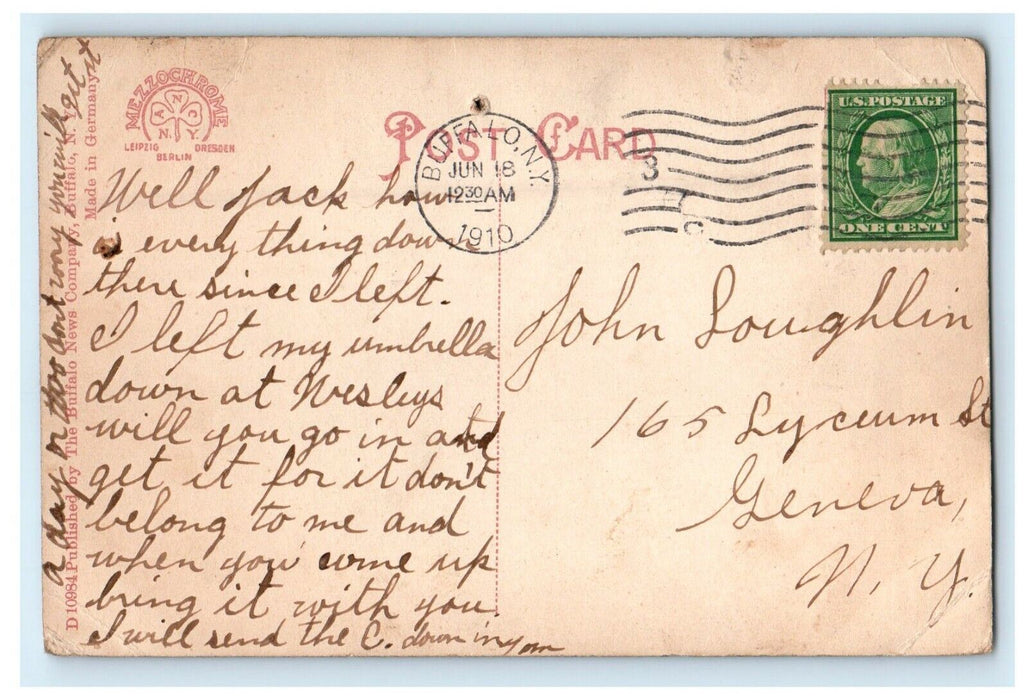 MEZZOCHROME
A N C
N. Y.
LEIPZIG DRESDEN
BERLIN
POST CARD
BUFFALO, N.Y.
JUN 18
12 30 AM
1910
3
U.S. POSTAGE
ONE CENT
Well Jack how
is every thing down
there since I left.
I left my umbrella
down at Wesleys
will you go in and
get it for it don't
belong to me and
when you come up
bring it with you.
I will send the C. down in
a day or two don't worry you will get it
John Loughlin
165 Lyceum St
Geneva,
N. Y.
D 10984 Published by The Buffalo News Company, Buffalo, N. Y.
Made in Germany